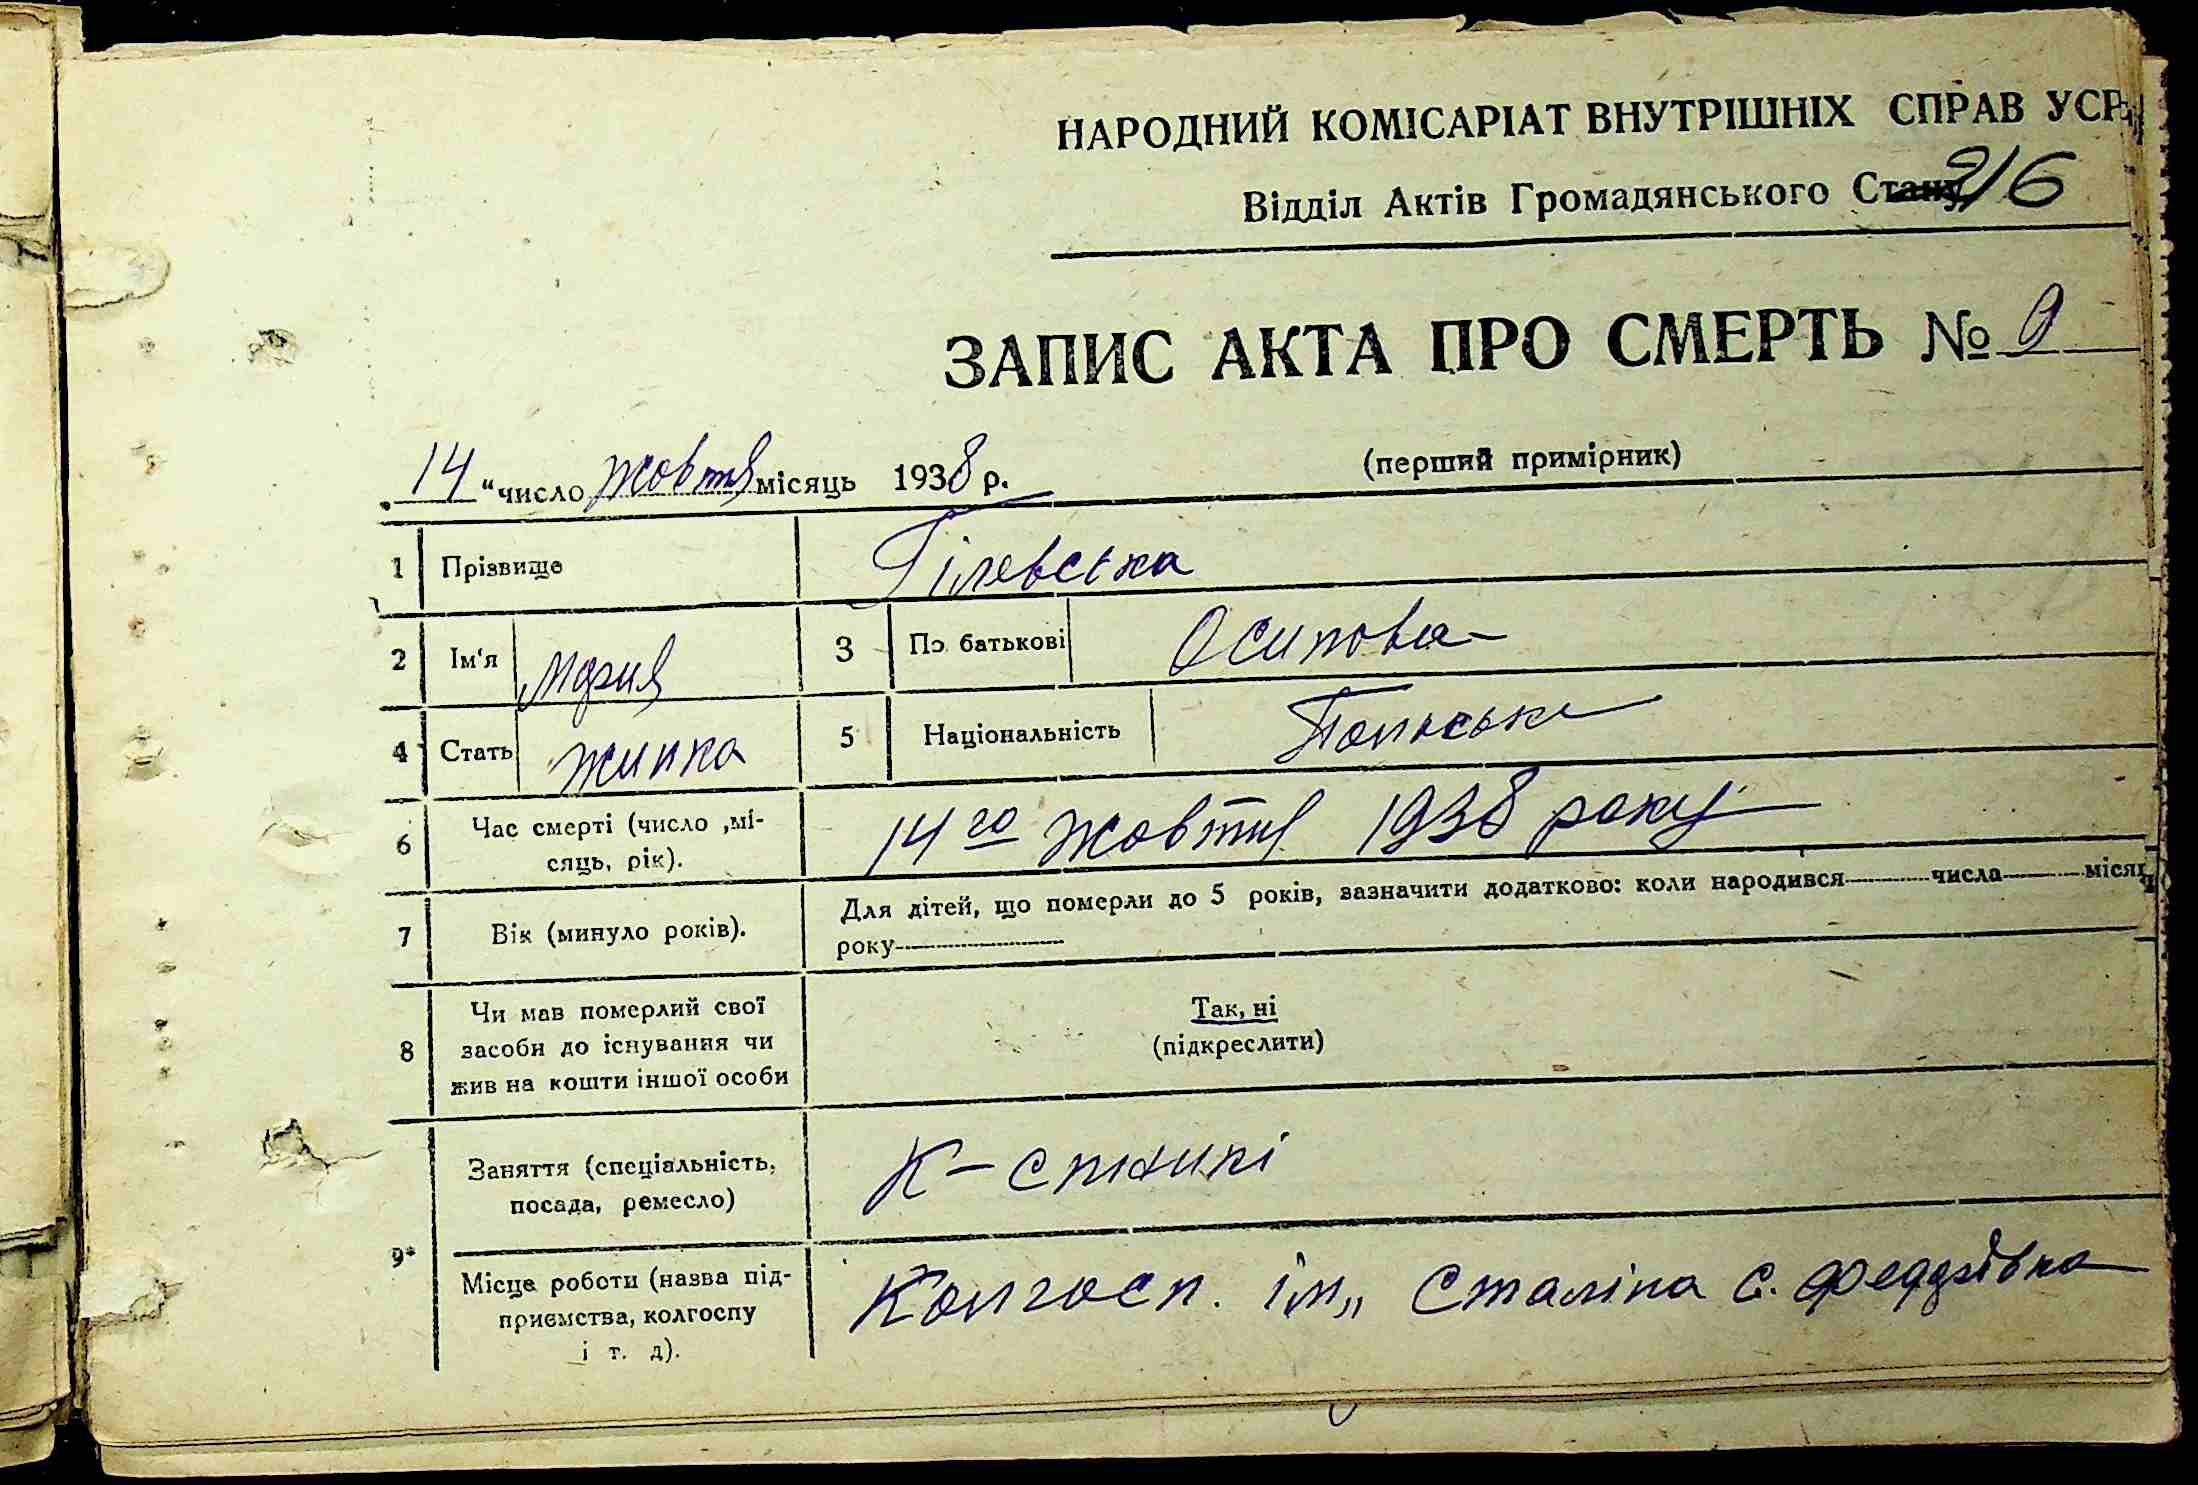 НАРОДНИЙ КОМІСАРІАТ ВНУТРІШНІХ СПРАВ УСР
Відділ Актів Громадянського Стану
216
ЗАПИС АКТА ПРО СМЕРТЬ № 9
(перший примірник)
14 "число жовтня місяць 1938 р.
1 Прізвище Гілевська
2 Ім'я Мария 3 По батькові Осипова
4 Стать жинка 5 Національність Полька
6 Час смерті (число ,мі-
сяць, рік).
14го жовтня 1938 року
7 Вік (минуло років).
Для дітей, що померли до 5 років, зазначити додатково: коли народився числа місяц
року
8 Чи мав померлий свої
засоби до існування чи
жив на кошти іншої особи
Так, ні
(підкреслити)
9*
Заняття (спеціальність,
посада, ремесло)
К-
Місце роботи (назва під-
приємства, колгоспу
і т. д).
Колгосп. ім„ Сталіна с.